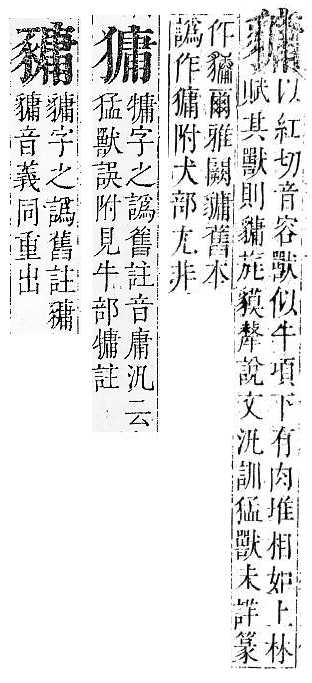 以紅切音容獸似牛項下有肉堆相如上林
賦其獸則旄貘犛說文汎訓猛獸未詳篆
作爾雅闕舊本
譌作㺎附犬部尤非
㺎
字之譌舊註音庸汎云
猛獸誤附見牛部註
字之譌舊註
音義同重出